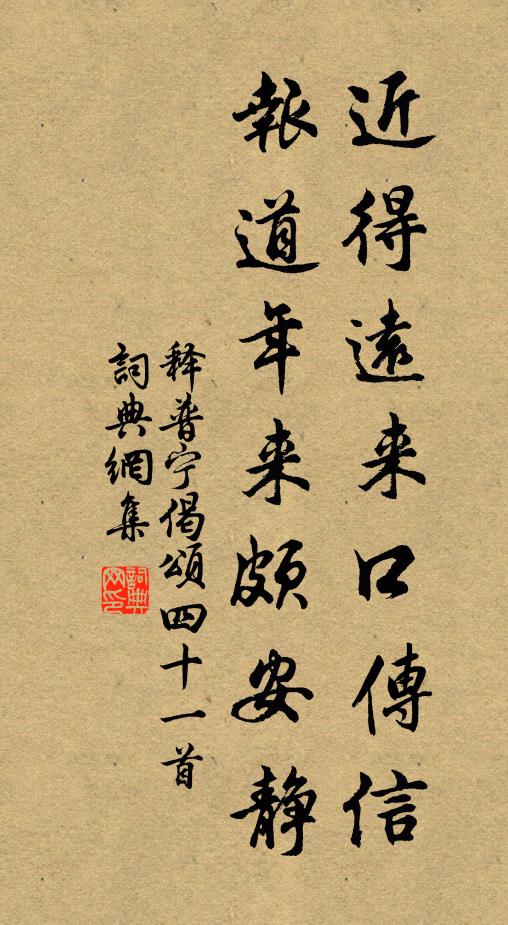 近得遠来口傳信
報道年来頗安静
释普宁偈頌四十一首
詞典網集
詞典网印